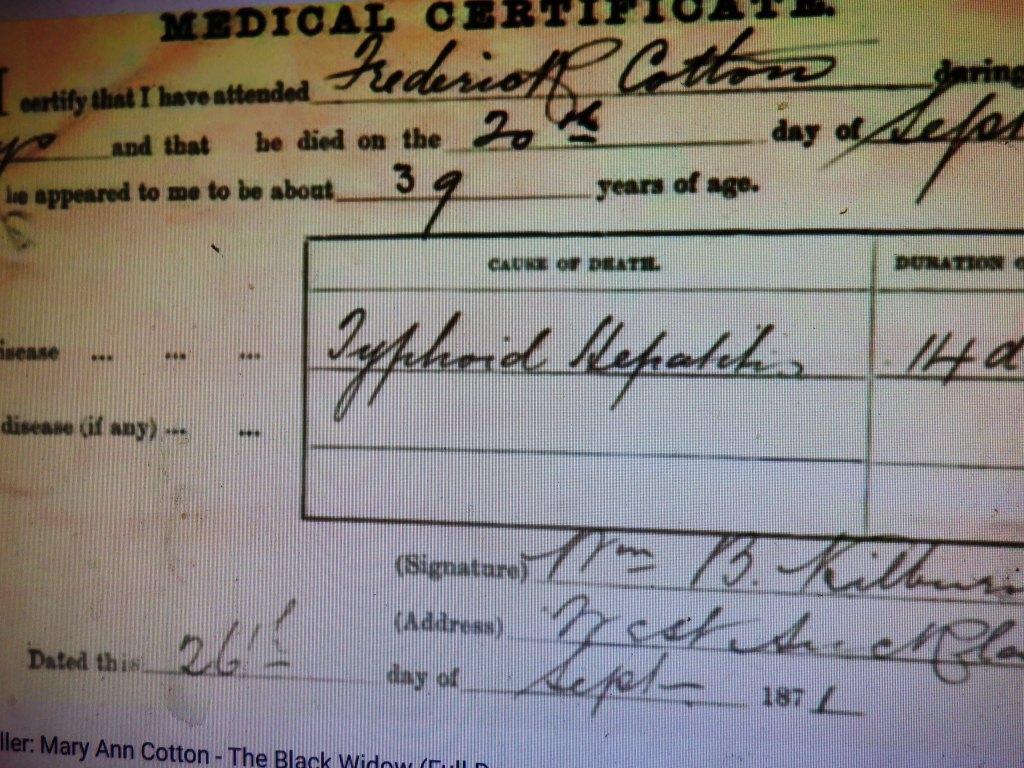 MEDICAL CERTIFICATE.
I certify that I have attended Frederick Cotton during
and that he died on the 20th day of Sept
he appeared to me to be about 39 years of age.
CAUSE OF DEATH. DURATION O
isease ... ... ... Typhoid Hepatitis 14 d
disease (if any) ... ...
(Signature) Wm B. Kilburn
(Address) West Auckla
Dated this 26th day of Sept 1871
ller: Mary Ann Cotton - The Black Widow (Full D